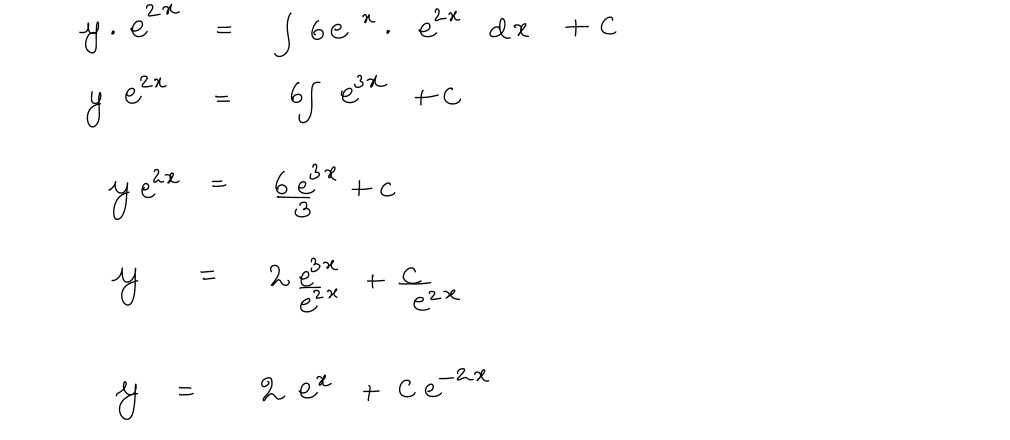 y · e^{2x} = ∫ 6e^{x} · e^{2x} dx + C
y e^{2x} = 6∫ e^{3x} + C
y e^{2x} = \frac{6 e^{3x}}{3} + C
y = 2 \frac{e^{3x}}{e^{2x}} + \frac{C}{e^{2x}}
y = 2 e^{x} + C e^{-2x}